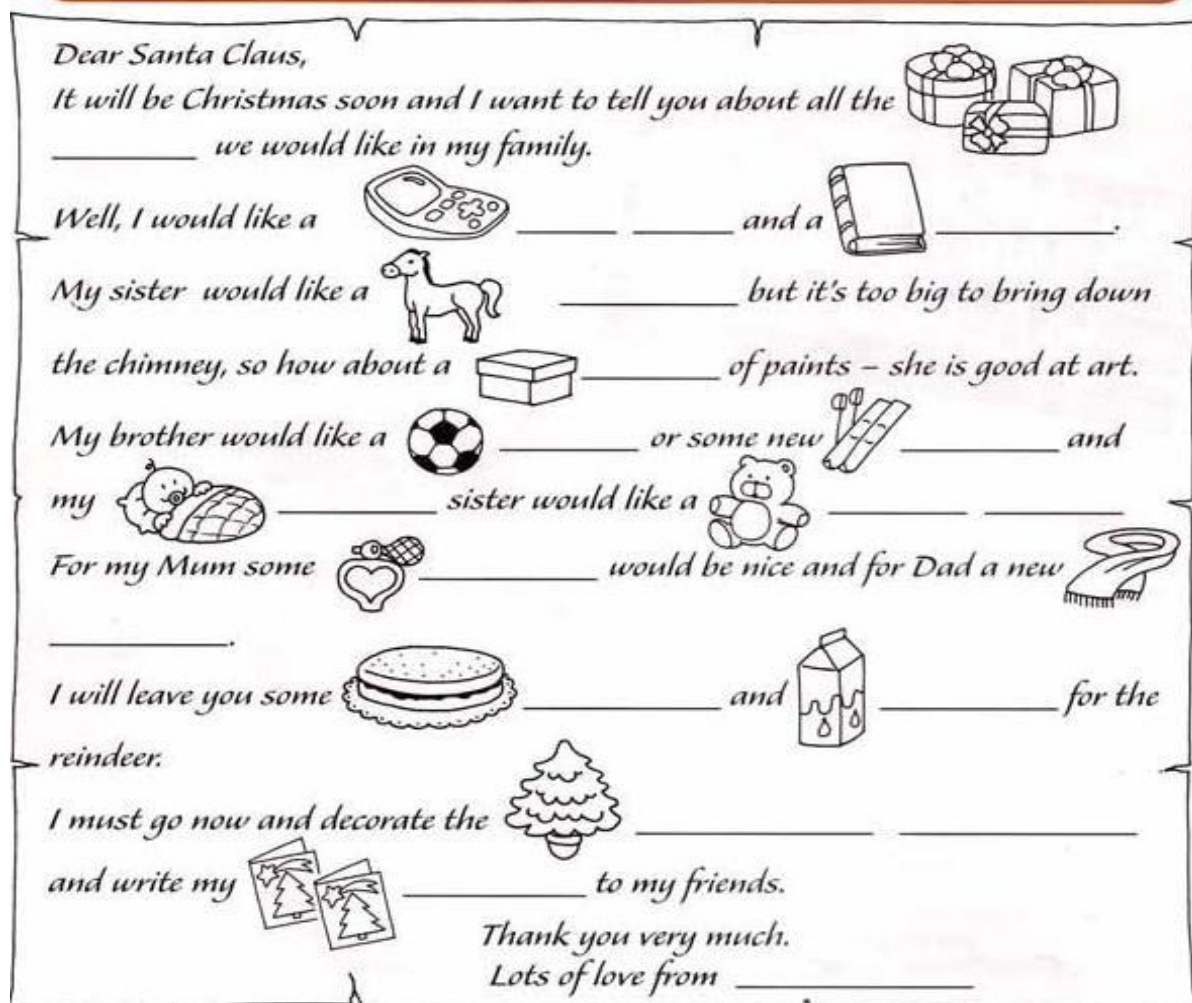 Dear Santa Claus,
It will be Christmas soon and I want to tell you about all the
__________ we would like in my family.
Well, I would like a _______ _______ and a ____________.
My sister would like a ____________ but it's too big to bring down
the chimney, so how about a __________ of paints – she is good at art.
My brother would like a __________ or some new __________ and
my ___________ sister would like a __________ __________
For my Mum some ____________ would be nice and for Dad a new
____________.
I will leave you some ______________ and ____________ for the
reindeer.
I must go now and decorate the ________________ ________________
and write my ____________ to my friends.
Thank you very much.
Lots of love from ________________